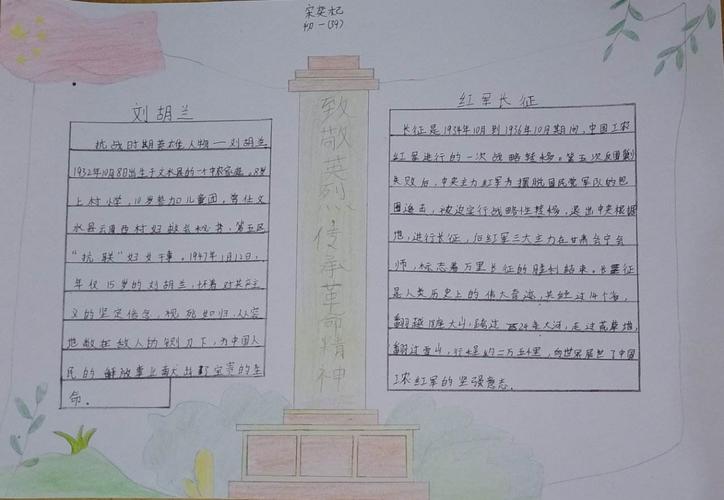 初一(39)
致敬英烈传承革命精神
刘胡兰
抗战时期英雄人物一刘胡兰
1932年10月8日出生于文水县的一个中农家庭。8岁
上村小学,10岁参加儿童团。曾任文
水县云周西村妇救会秘书、第五区
“抗联”妇女干事。1947年1月12日,
年仅15岁的刘胡兰,怀着对共产主
义的坚定信念,视死如归,从容
地敌在敌人的铡刀下,为中国人
民的解放事业献出宝贵的生
命。
红军长征
长征是1934年10月到1936年10月期间,中国工农
红军进行的一次战略转移。第五次反围剿
失败后,中央主力红军为摆脱国民党军队的包
围追击,被迫实行战略性转移,退出中央根据
地,进行长征,后红军三大主力在甘肃会宁会
师,标志着万里长征的胜利结束。长征
是人类历史上的伟大奇迹,共经过14个省,
翻越18座大山,跨过24条大河,走过荒草地,
翻过雪山,行程约二万五千里,向世界展示了中国
工农红军的坚强意志。